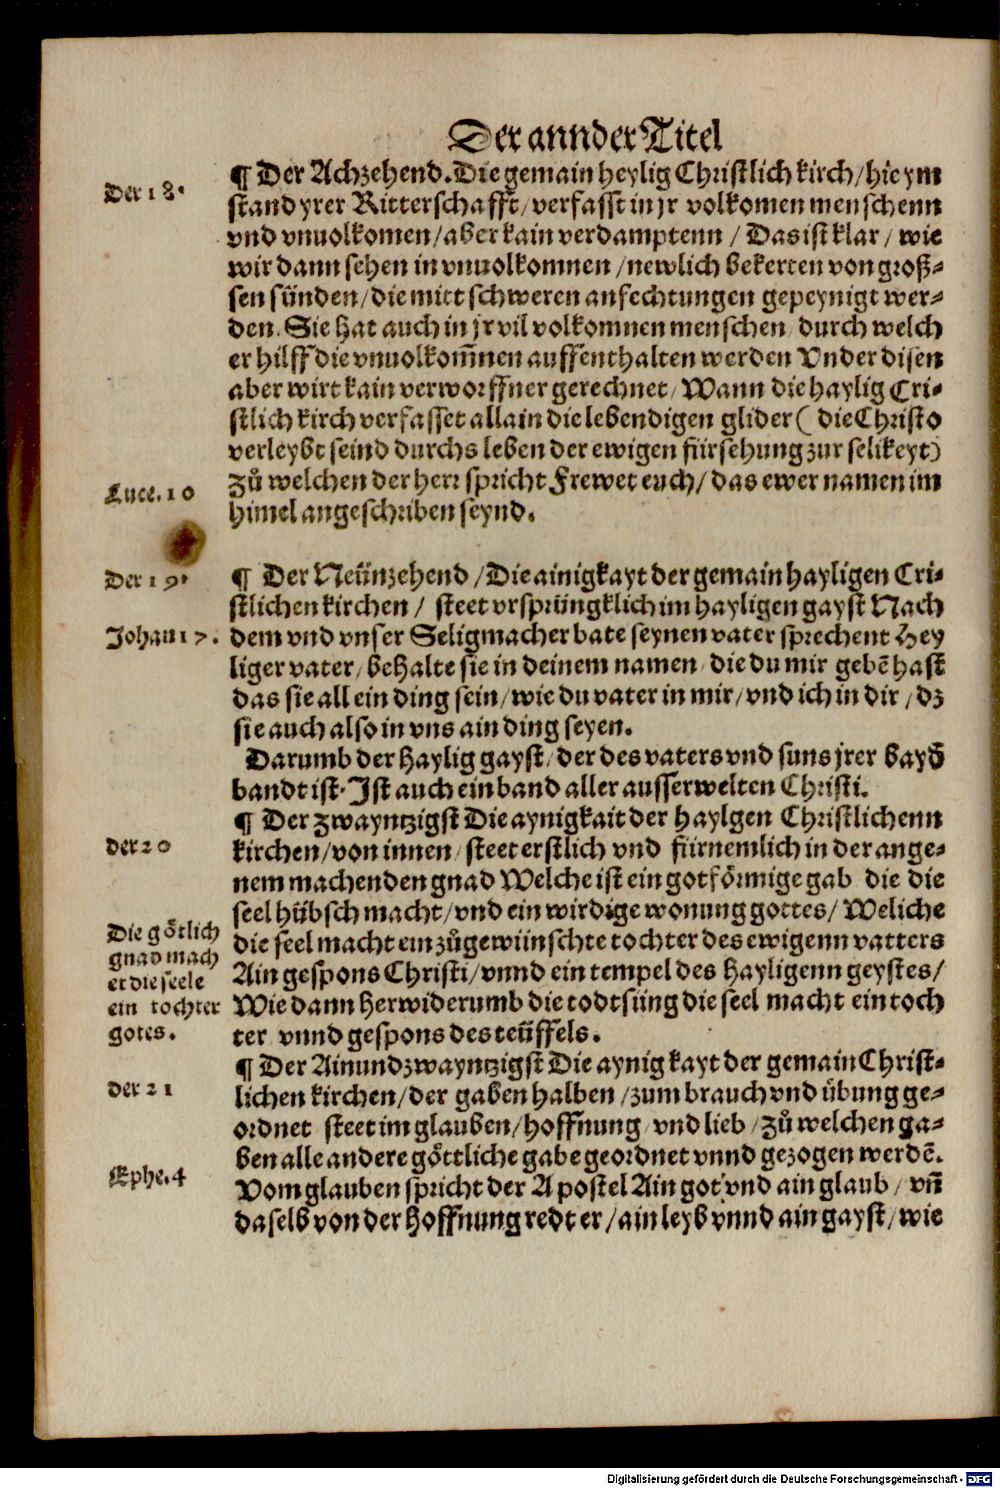 Der annder Titel
Der 18.
¶ Der Achzehend. Die gemain heylig Christlich kirch/ hie ym
stand yrer Ritterschafft/ verfasst in jr volkomen menschenn
vnd vnuolkomen/ aber kain verdamptenn / Das ist klar/ wie
wir dann sehen in vnuolkomnen /newlich bekerten von groß-
sen sünden/ die mitt schweren anfechtungen gepeynigt wer-
den. Sie hat auch in jr vil volkomnen menschen/ durch welch
er hilff die vnuolkom̄nen auffenthalten werden Vnder disen
aber wirt kain verworffner gerechnet/ Wann die haylig Cri-
stlich kirch verfasset allain die lebendigen glider ( die Christo
verleybt seind durchs leben der ewigen fürsehung zur selikeyt)
Luce. 10
zů welchen der herr spricht Frewet euch/ das ewer namen im
himel angeschriben seynd.
Der 19.
¶ Der Neünzehend /Die ainigkayt der gemain hayligen Cri-
stlichen kirchen / steet vrsprüngklich im hayligen gayst Nach
Johan 17.
dem vnd vnser Seligmacher bate seynen vater sprechent Hey
liger vater/ behalte sie in deinem namen/ die du mir gebē hast
das sie all ein ding sein/ wie du vater in mir/ vnd ich in dir / dz
sie auch also in vns ain ding seyen.
Darumb der haylig gayst/ der des vaters vnd suns jrer bayd̄
bandt ist. Ist auch ein band aller ausserwelten Christi.
der 20
¶ Der zwayntzigst Die aynigkait der haylgen Christlichenn
kirchen/ von innen/ steet erstlich vnd fürnemlich in der ange-
nem machenden gnad Welche ist ein gotförmige gab die die
seel hübsch macht/ vnd ein wirdige wonung gottes/ Weliche
Die götlich
gnad mach
et die seele
ein tochter
gotes.
die seel macht ein zůgewünschte tochter des ewigenn vatters
Ain gespons Christi/ vnnd ein tempel des hayligenn geystes/
Wie dann herwiderumb die todtsüng die seel macht ein toch
ter vnnd gespons des teüffels.
der 21
¶ Der Ainundzwayntzigst Die aynigkayt der gemain Christ-
lichen kirchen/ der gaben halben /zum brauch vnd übung ge-
ordnet steet im glauben/ hoffnung/ vnd lieb/ zů welchen ga-
ben alle andere göttliche gabe geordnet vnnd gezogen werdē.
Ephe. 4
Vom glauben spricht der Apostel Ain got/ vnd ain glaub/ vn̄
daselb von der hoffnung redt er/ ain leyb vnnd ain gayst/ wie
Digitalisierung gefördert durch die Deutsche Forschungsgemeinschaft - DFG